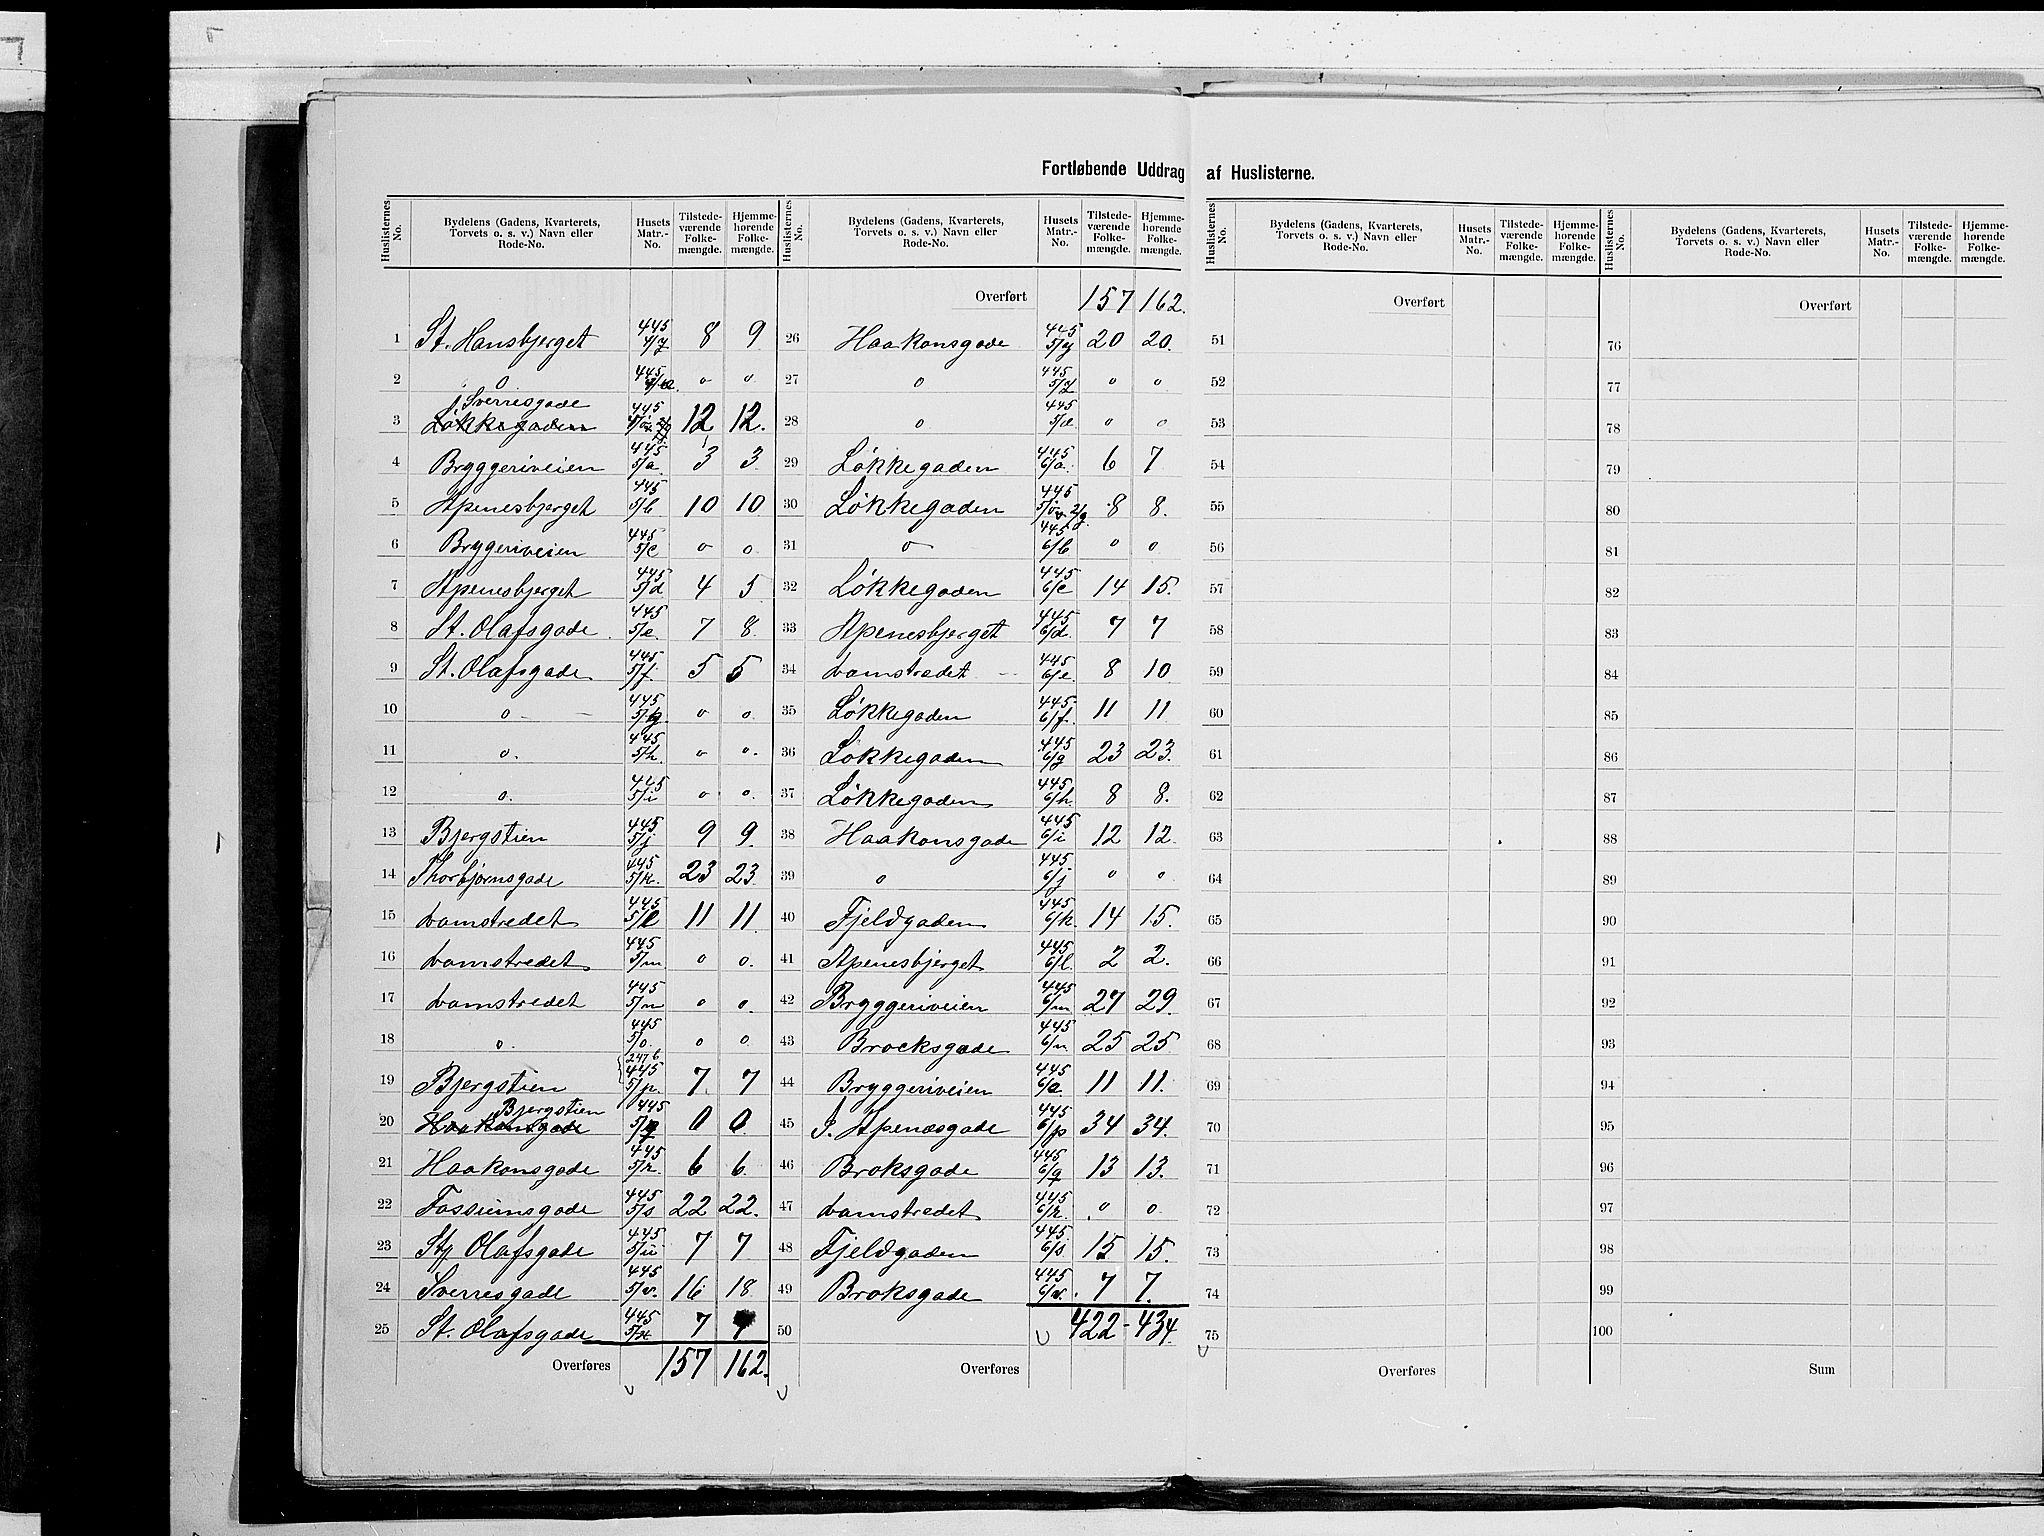 Fortløbende Uddrag af Huslisterne.
Huslisternes No. | Bydelens (Gadens, Kvarterets, Torvets o. s. v.) Navn eller Rode-No. | Husets Matr.-No. | Tilstedeværende Folkemængde. | Hjemmehørende Folkemængde.
1 St. Hansbjerget 445 4/z 8 9
2 " o 445 4/æ o o
3 Løkkegaden Sverresgade 445 4/ø 12 12.
4 Bryggeriveien 445 5/a 3 3
5 Apenesbjerget 445 5/b 10 10
6 Bryggeriveien 445 5/c o o
7 Apenesbjerget 445 5/d 4 5
8 St. Olafsgade 445 5/e 7 8
9 St. Olafsgade 445 5/f 5 5
10 o 445 5/g o o
11 o. 445 5/h o o.
12 o. 445 5/i o o.
13 Bjergstien 445 5/j 9 9.
14 Thorbjørnsgade 445 5/k 23 23
15 Damstredet 445 5/l 11 11
16 Damstredet 445 5/m o o.
17 Damstredet 445 5/n o o.
18 o. 445 5/o o o
19 Bjergstien 247 b 445 5/p 7 7
20 Haakonsgade Bjergstien 445 5/q 0 0
21 Haakonsgade 445 5/r 6 6
22 Fossumsgade 445 5/s 22 22.
23 St. Olafsgade 445 5/u 7 7
24 Sverresgade 445 5/v. 16 18
25 St. Olafsgade 445 5/x 7 7
Overføres 157 162.
Huslisternes No. | Bydelens (Gadens, Kvarterets, Torvets o. s. v.) Navn eller Rode-No. | Husets Matr.-No. | Tilstedeværende Folkemængde. | Hjemmehørende Folkemængde.
Overført 157 162.
26 Haakonsgade 445 5/y 20 20.
27 o 445 5/z o o
28 o 445 5/æ o o
29 Løkkegaden 445 6/a. 6 7
30 Løkkegaden 445 5/ø 8 8.
31 o 445 6/b o o
32 Løkkegaden 445 6/c 14 15.
33 Apenesbjerget 445 6/d. 7 7
34 Damstredet 445 6/e. 8 10
35 Løkkegaden 445 6/f. 11 11
36 Løkkegaden 445 6/g 23 23.
37 Løkkegaden 445 6/h. 8 8.
38 Haakonsgade 445 6/i 12 12.
39 o 445 6/j o o
40 Fjeldgaden 445 6/k. 14 15.
41 Apenesbjerget 445 6/l. 2 2.
42 Bryggeriveien 445 6/m 27 29.
43 Brocksgade 445 6/n 25 25
44 Bryggeriveien 445 6/o 11 11.
45 Apenæsgade 445 6/p 34 34.
46 Broksgade 445 6/q 13 13.
47 Damstredet 445 6/r. o o
48 Fjeldgaden 445 6/s 15 15.
49 Broksgade 445 7 7.
50 422 - 434
Overføres
Huslisternes No. | Bydelens (Gadens, Kvarterets, Torvets o. s. v.) Navn eller Rode-No. | Husets Matr.-No. | Tilstedeværende Folkemængde. | Hjemmehørende Folkemængde.
Overført
51
52
53
54
55
56
57
58
59
60
61
62
63
64
65
66
67
68
69
70
71
72
73
74
75
Overføres
Huslisternes No. | Bydelens (Gadens, Kvarterets, Torvets o. s. v.) Navn eller Rode-No. | Husets Matr.-No. | Tilstedeværende Folkemængde. | Hjemmehørende Folkemængde.
Overført
76
77
78
79
80
81
82
83
84
85
86
87
88
89
90
91
92
93
94
95
96
97
98
99
100
Sum